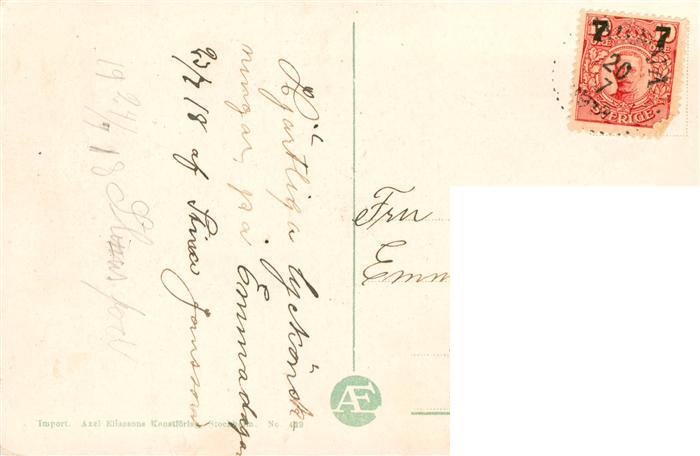 Hjärtliga lyckönsk
ningar, på Emmadagen
23/7 18 af Stina Jansson
19 24/7 18
Fru
Emm
7 7
SVERIGE
20
7
AE
Import. Axel Eliassons Konstförlag Stockholm. No. 419